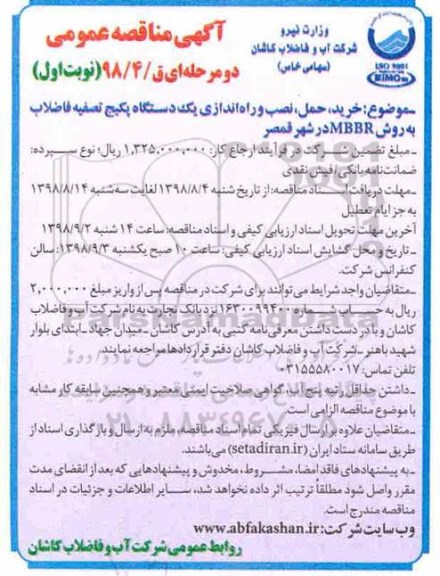 وزارت نیرو
شرکت آب و فاضلاب کاشان
(سهامی خاص)
ISO 9001
BIMO
آگهی مناقصه عمومی
دو مرحله‌ای ق/۹۸/۴ (نوبت اول)
ـ موضوع: خرید، حمل، نصب و راه‌اندازی یک دستگاه پکیج تصفیه فاضلاب
به روش MBBR در شهر قمصر
ـ مبلغ تضمین شرکت در فرآیند ارجاع کار: ۱,۳۲۵,۰۰۰,۰۰۰ ریال؛ نوع سپرده:
ضمانت‌نامه بانکی / فیش نقدی
ـ مهلت دریافت اسناد مناقصه: از تاریخ شنبه ۱۳۹۸/۸/۴ لغایت سه‌شنبه ۱۳۹۸/۸/۱۴
به جز ایام تعطیل
آخرین مهلت تحویل اسناد ارزیابی کیفی و اسناد مناقصه: ساعت ۱۴ شنبه ۱۳۹۸/۹/۲
ـ تاریخ و محل گشایش اسناد ارزیابی کیفی: ساعت ۱۰ صبح یکشنبه ۱۳۹۸/۹/۳؛ سالن
کنفرانس شرکت.
ـ متقاضیان واجد شرایط می‌توانند برای شرکت در مناقصه پس از واریز مبلغ ۲,۰۰۰,۰۰۰
ریال به حساب شماره نزد بانک تجارت به نام شرکت آب و فاضلاب
کاشان و با در دست داشتن معرفی‌نامه کتبی به آدرس کاشان ـ میدان جهاد ـ ابتدای بلوار
شهید باهنر ـ شرکت آب و فاضلاب کاشان دفتر قراردادها مراجعه نمایند.
تلفن تماس: ۰۳۱۵۵۵۸۰۰۱۷
ـ داشتن حداقل رتبه پنج آب، گواهی صلاحیت ایمنی معتبر و همچنین سابقه کار مشابه
با موضوع مناقصه الزامی است.
ـ متقاضیان علاوه بر ارسال فیزیکی تمام اسناد مناقصه، ملزم به ارسال و بارگذاری اسناد از
طریق سامانه ستاد ایران (setadiran.ir) می‌باشند.
ـ به پیشنهادهای فاقد امضا، مشروط، مخدوش و پیشنهادهایی که بعد از انقضای مدت
مقرر واصل شود مطلقاً ترتیب اثر داده نخواهد شد، سایر اطلاعات و جزئیات در اسناد
مناقصه مندرج است.
وب سایت شرکت: www.abfakashan.ir
روابط عمومی شرکت آب و فاضلاب کاشان